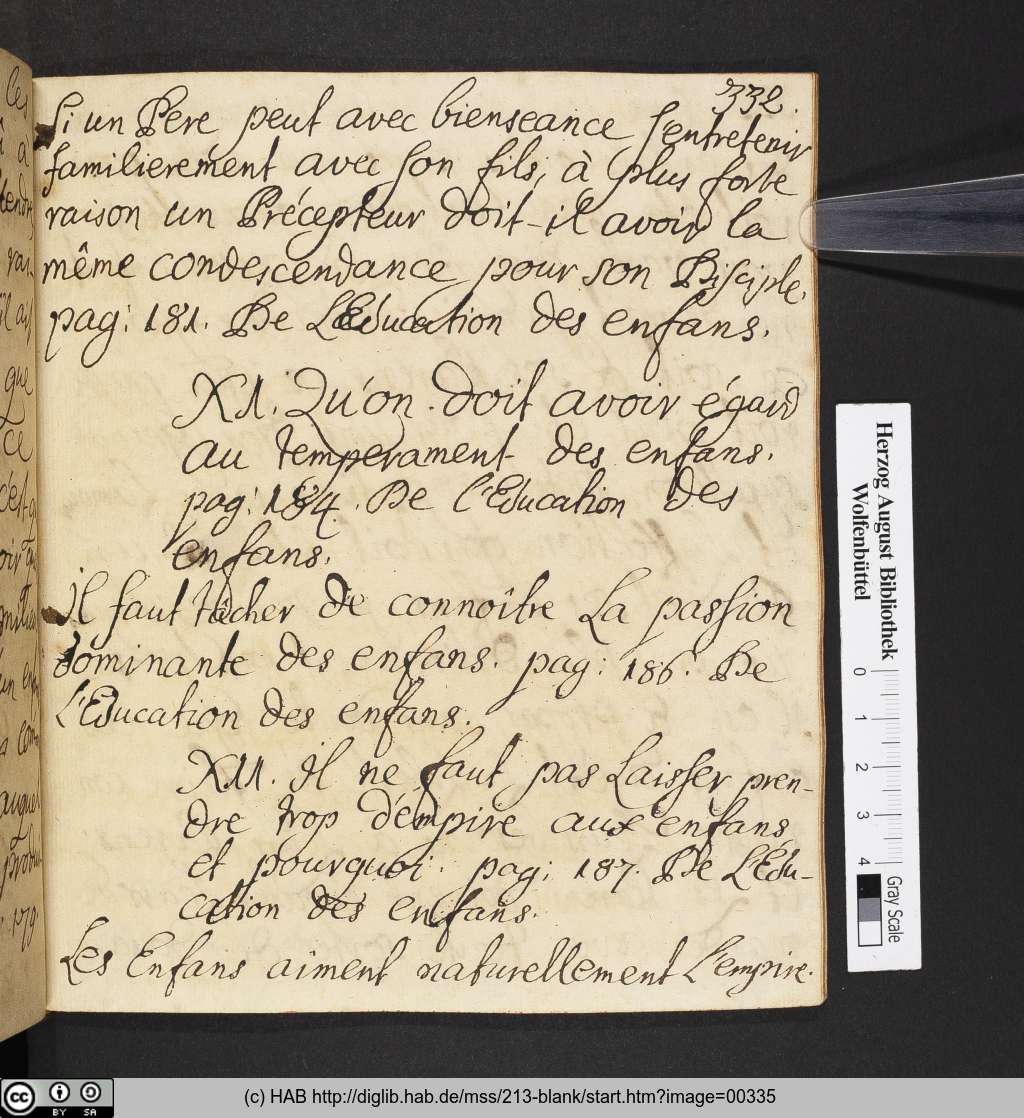 332.
Si un Pere peut avec bienseance s'entretenir
familierement avec son fils, à plus forte
raison un Précepteur doit-il avoir la
même condescendance pour son Disciple.
pag: 181. De L'Education des enfans.
XI. Qu'on doit avoir égard
au temperament des enfans.
pag: 184. De l'Education des
enfans.
Il faut tâcher de connoître La passion
dominante des enfans. pag: 186. De
l'Education des enfans.
XII. Il ne faut pas Laisser pren-
dre trop d'empire aux enfans
et pourquoi. pag: 187. De L'Edu-
cation des enfans.
Les Enfans aiment naturellement L'empire.
Herzog August Bibliothek
Wolfenbüttel
0 1 2 3 4
Gray Scale
cc BY SA
(c) HAB http://diglib.hab.de/mss/213-blank/start.htm?image=00335